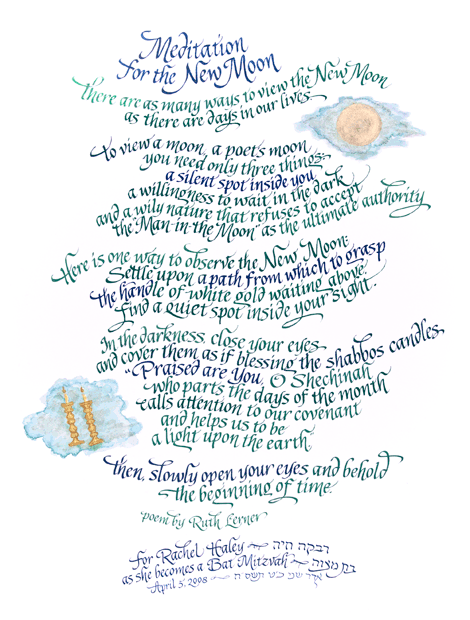 Meditation
for the New Moon
There are as many ways to view the New Moon
as there are days in our lives.
To view a moon, a poet's moon
you need only three things:
a silent spot inside you
a willingness to wait in the dark
and a wily nature that refuses to accept
the "Man-in-the-Moon" as the ultimate authority
Here is one way to observe the New Moon:
Settle upon a path from which to grasp
the handle of white gold waiting above.
Find a quiet spot inside your sight.
In the darkness, close your eyes
and cover them as if blessing the shabbos candles.
"Praised are You, O Shechinah
who parts the days of the month
calls attention to our covenant
and helps us to be
a light upon the earth."
Then, slowly open your eyes and behold
the beginning of time.
poem by Ruth Lerner
for Rachel Haley רבקה חיה
as she becomes a Bat Mitzvah בת מצוה
April 5, 2008